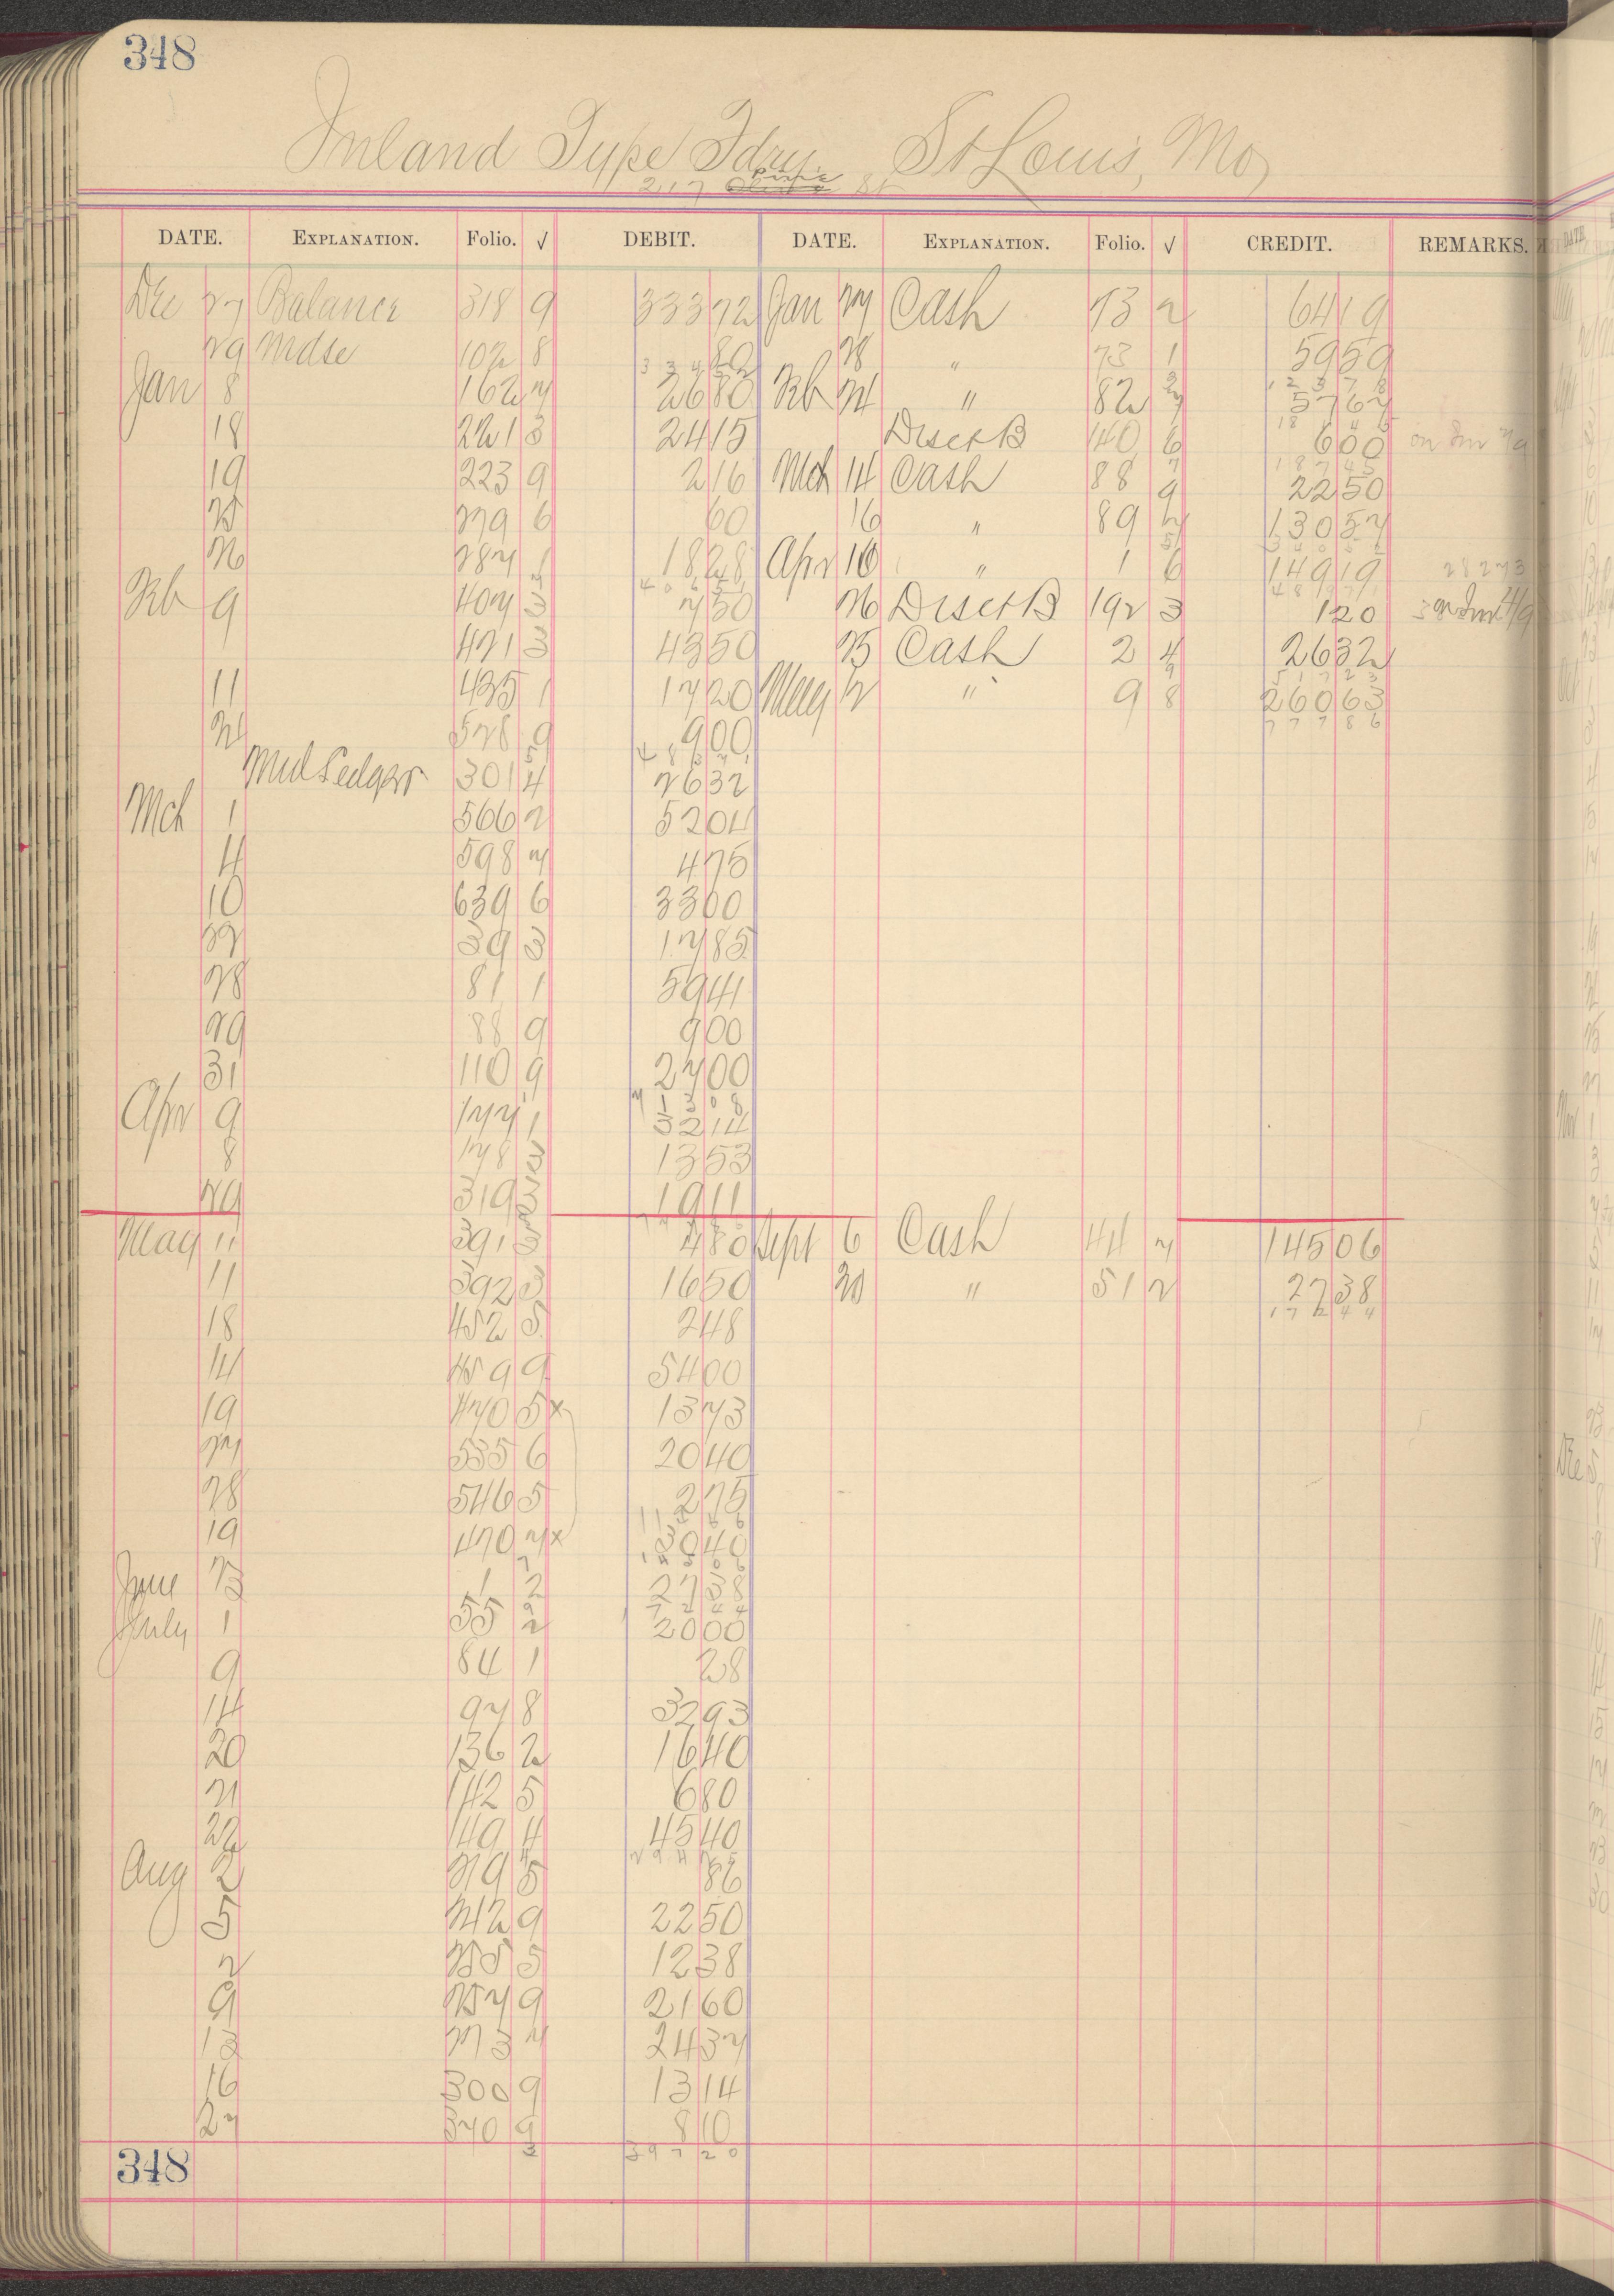 348
Inland Type Fdry. St Louis, Mo
217 Pine St
DATE. EXPLANATION. Folio. √ DEBIT. DATE. EXPLANATION. Folio. √ CREDIT. REMARKS.
Dec 27 Balance 318 9 333 72 Jan 27 Cash 73 2 64 19
29 Mdse 102 8 80 28 " 73 1 59 59
Jan 8 162 7 26 80 Feb 24 " 82 57 67
18 221 3 24 15 Disct B 140 6 6 00
19 223 9 2 16 Mch 14 Cash 88 9 22 50
25 279 6 60 16 " 89 2 130 57
26 287 1 18 28 Apr 10 " 1 6 149 19 282 73
Feb 9 407 3 7 50 26 Disct B 192 3 1 20
421 3 43 50 25 Cash 2 4 26 32
11 435 1 17 20 May 2 " 9 8 260 63
24 528 9 9 00
Mdse Ledger 301 4 26 32
Mch 1 566 2 52 04
4 598 7 4 75
10 639 6 33 00
22 39 3 17 85
28 81 1 59 41
29 88 9 9 00
31 110 9 27 00
Apr 9 177 1 32 14
8 178 3 13 53
29 319 3 19 11
May 11 391 3 4 80 Sept 6 Cash 44 7 145 06
11 392 3 16 50 20 " 51 2 27 38
18 452 5 2 48
14 459 9 54 00
19 470 5 x 13 73
27 535 6 20 40
28 546 5 2 75
19 470 7 x 30 40
June 23 1 2 27 38
July 1 55 2 20 00
9 84 1 28
14 97 8 32 93
20 136 2 16 40
21 142 5 6 80
22 149 4 45 40
Aug 2 219 5 86
5 242 9 22 50
7 255 5 12 38
9 257 9 21 60
13 273 7 24 37
16 300 9 13 14
27 370 9 8 10
397 20
348